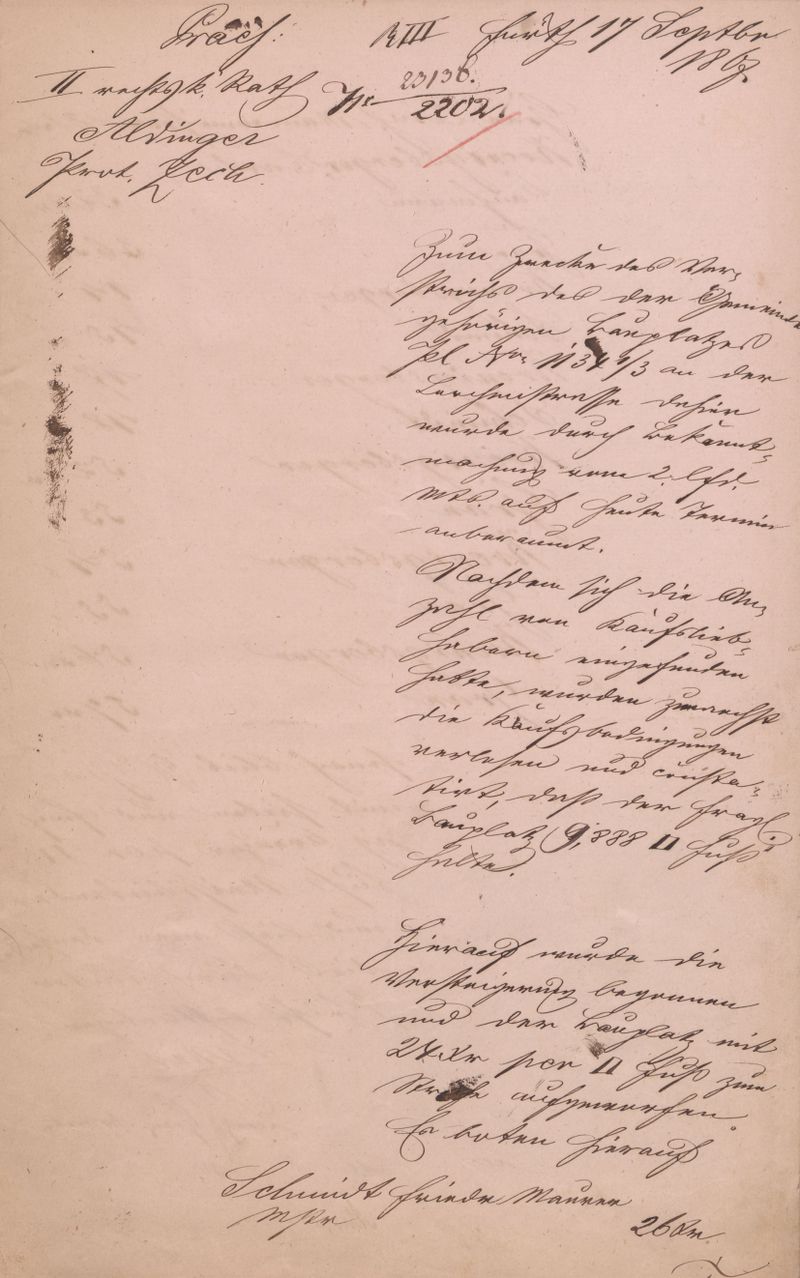 Präs:
R III Fürth 17 Septbr
1867.
II rechtsk. Rath
Aldinger
Prot. Zech.
Nr 23136.
2202.
Zum Zwecke des Ver-
strichs des der Gemeinde
gehörigen Bauplatzes
Pl Nro 1134 1/3 an der
dahier
wurde durch Bekannt-
machung vom 2. lfd.
Mts. auf heute Termin
anberaumt.
Nachdem sich die An-
zahl von Kaufslieb-
habern eingefunden
hatte, wurden zunaechst
die Kaufsbedingungen
verlesen und consta-
tirt, daß der fragl.
Bauplatz 9,888 □ Fuß
halte.
Hierauf wurde die
Versteigerung begonnen
und der Bauplatz mit
24 Kr per □ Fuß zum
Striche aufgeworfen.
Es boten hierauf
Schmidt Friedr Maurer
Mstr 26 Kr.